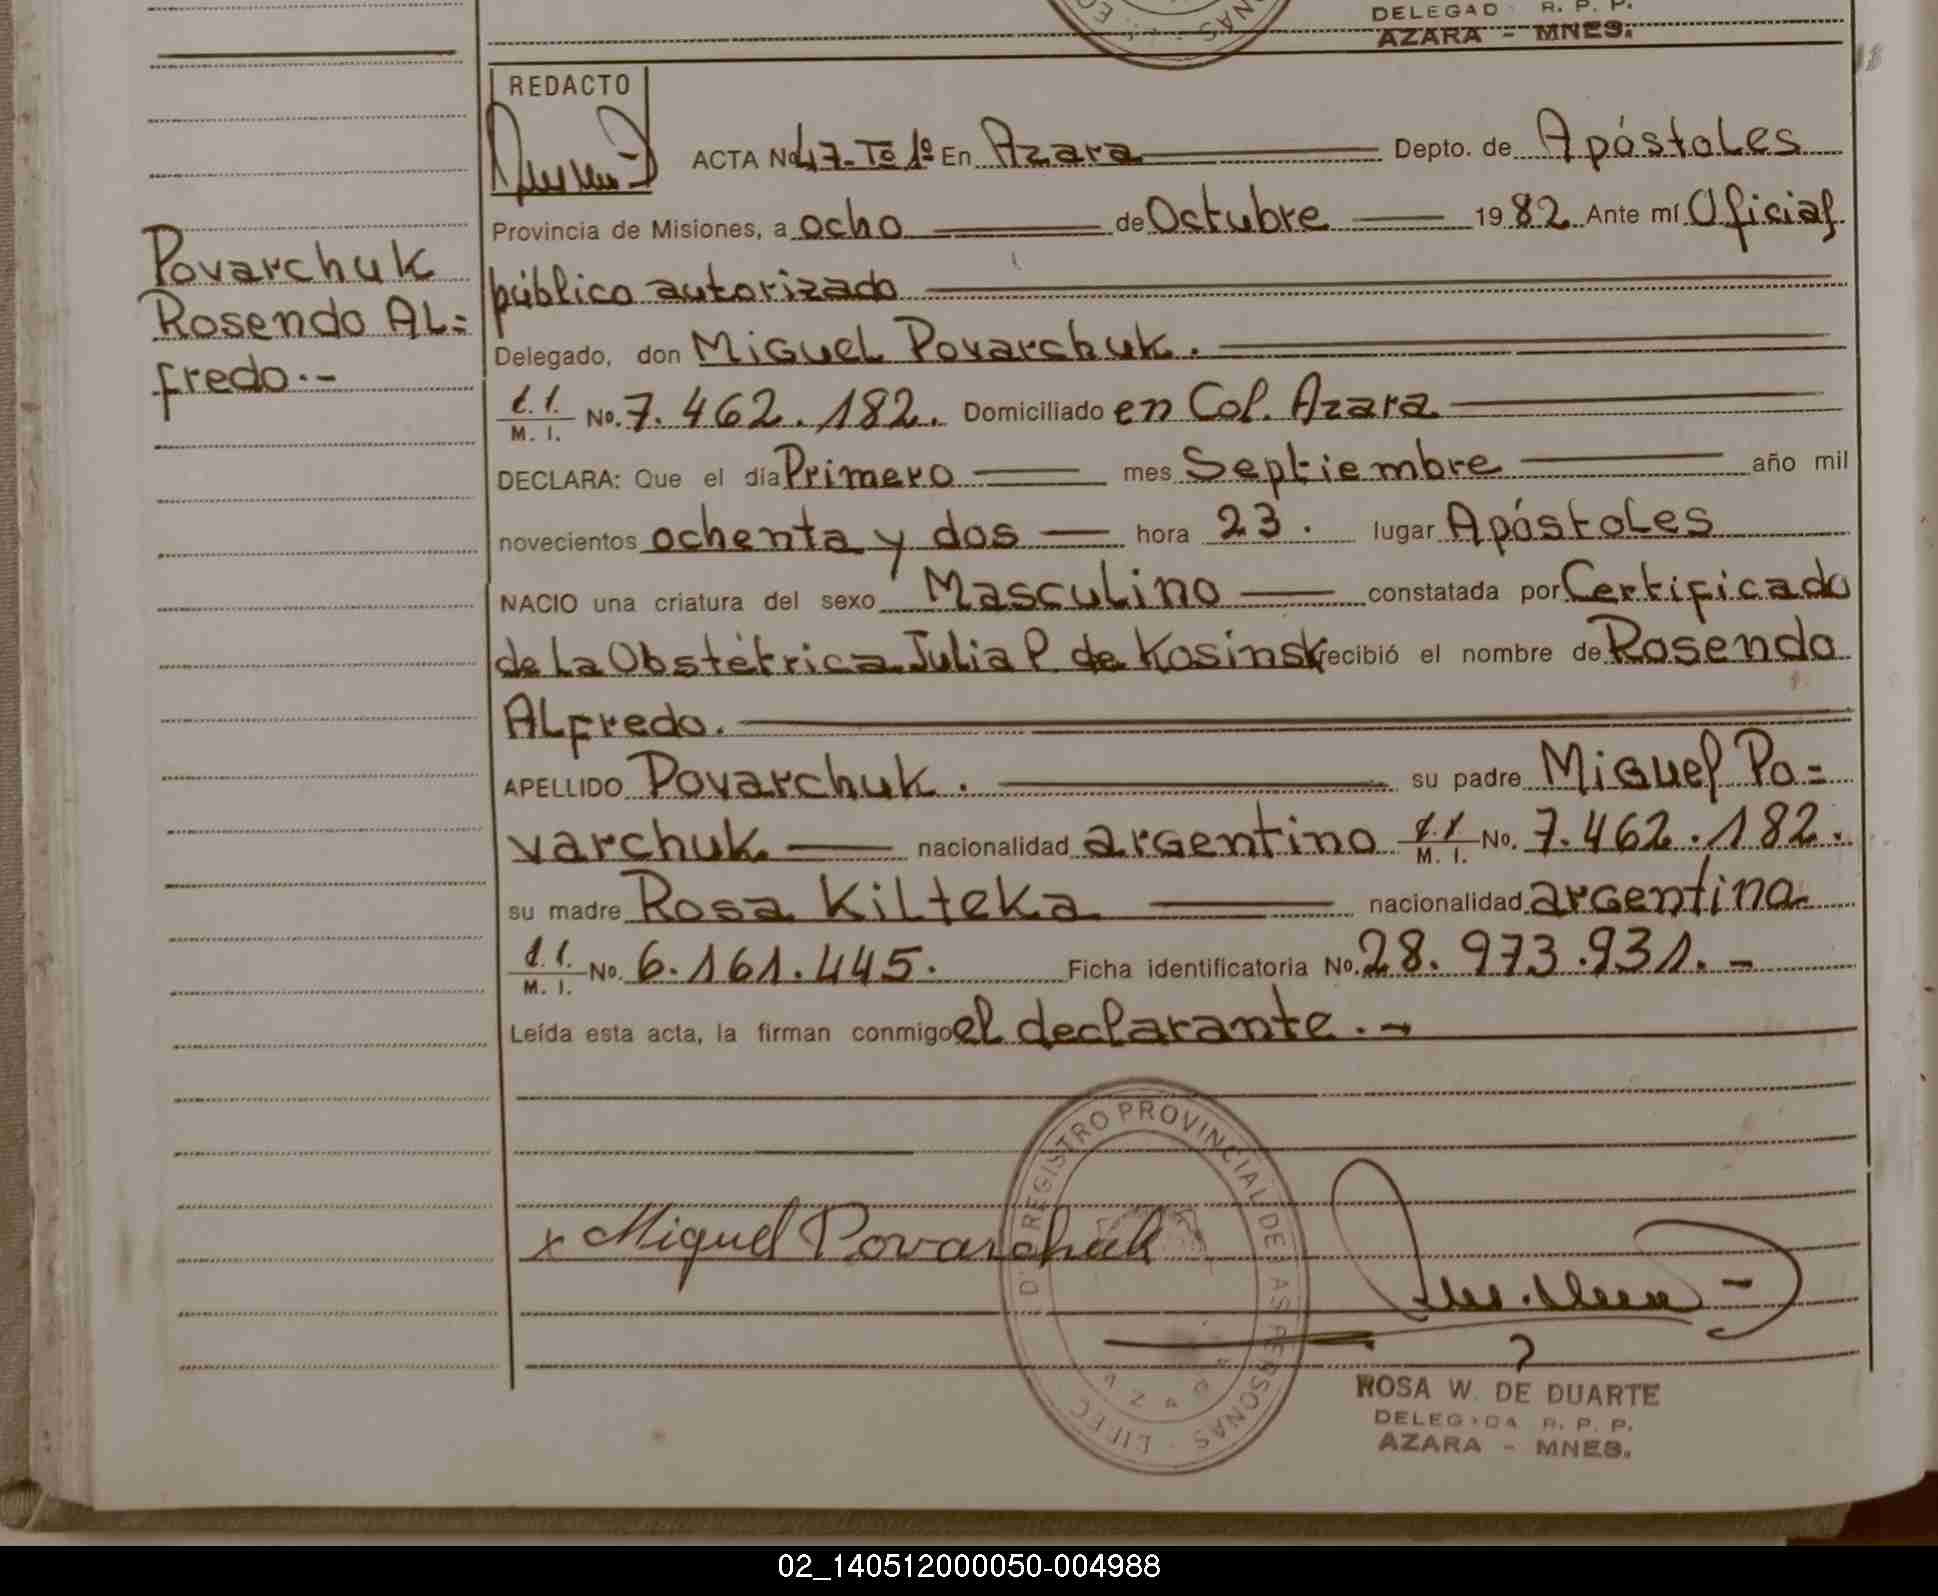 DELEGAD R. P. P.
AZARA - MNES.
REDACTO
ACTA No. 47. Tº 1º En Azara Depto. de Apóstoles
Provincia de Misiones, a ocho de Octubre 1982. Ante mí Oficial
público autorizado
Povarchuk
Rosendo AL=
fredo.-
Delegado, don Miguel Povarchuk.
M. I. No. 7.462.182. Domiciliado en Col. Azara
DECLARA: Que el día Primero mes Septiembre año mil
novecientos ochenta y dos hora 23. lugar Apóstoles
NACIO una criatura del sexo Masculino constatada por Certificado
de la Obstétrica Julia P. de Kosinsk recibió el nombre de Rosendo
ALfredo.
APELLIDO Povarchuk. su padre Miguel Po=
varchuk nacionalidad argentino M. I. No. 7.462.182.
su madre Rosa Kilteka nacionalidad argentina
M. I. No. 6.161.445. Ficha identificatoria No. 28.973.931.-
Leída esta acta, la firman conmigo el declarante.-
REGISTRO PROVINCIAL DE LAS PERSONAS
x Miguel Povarchuk
ROSA W. DE DUARTE
DELEGADA R. P. P.
AZARA - MNES.
02_140512000050-004988